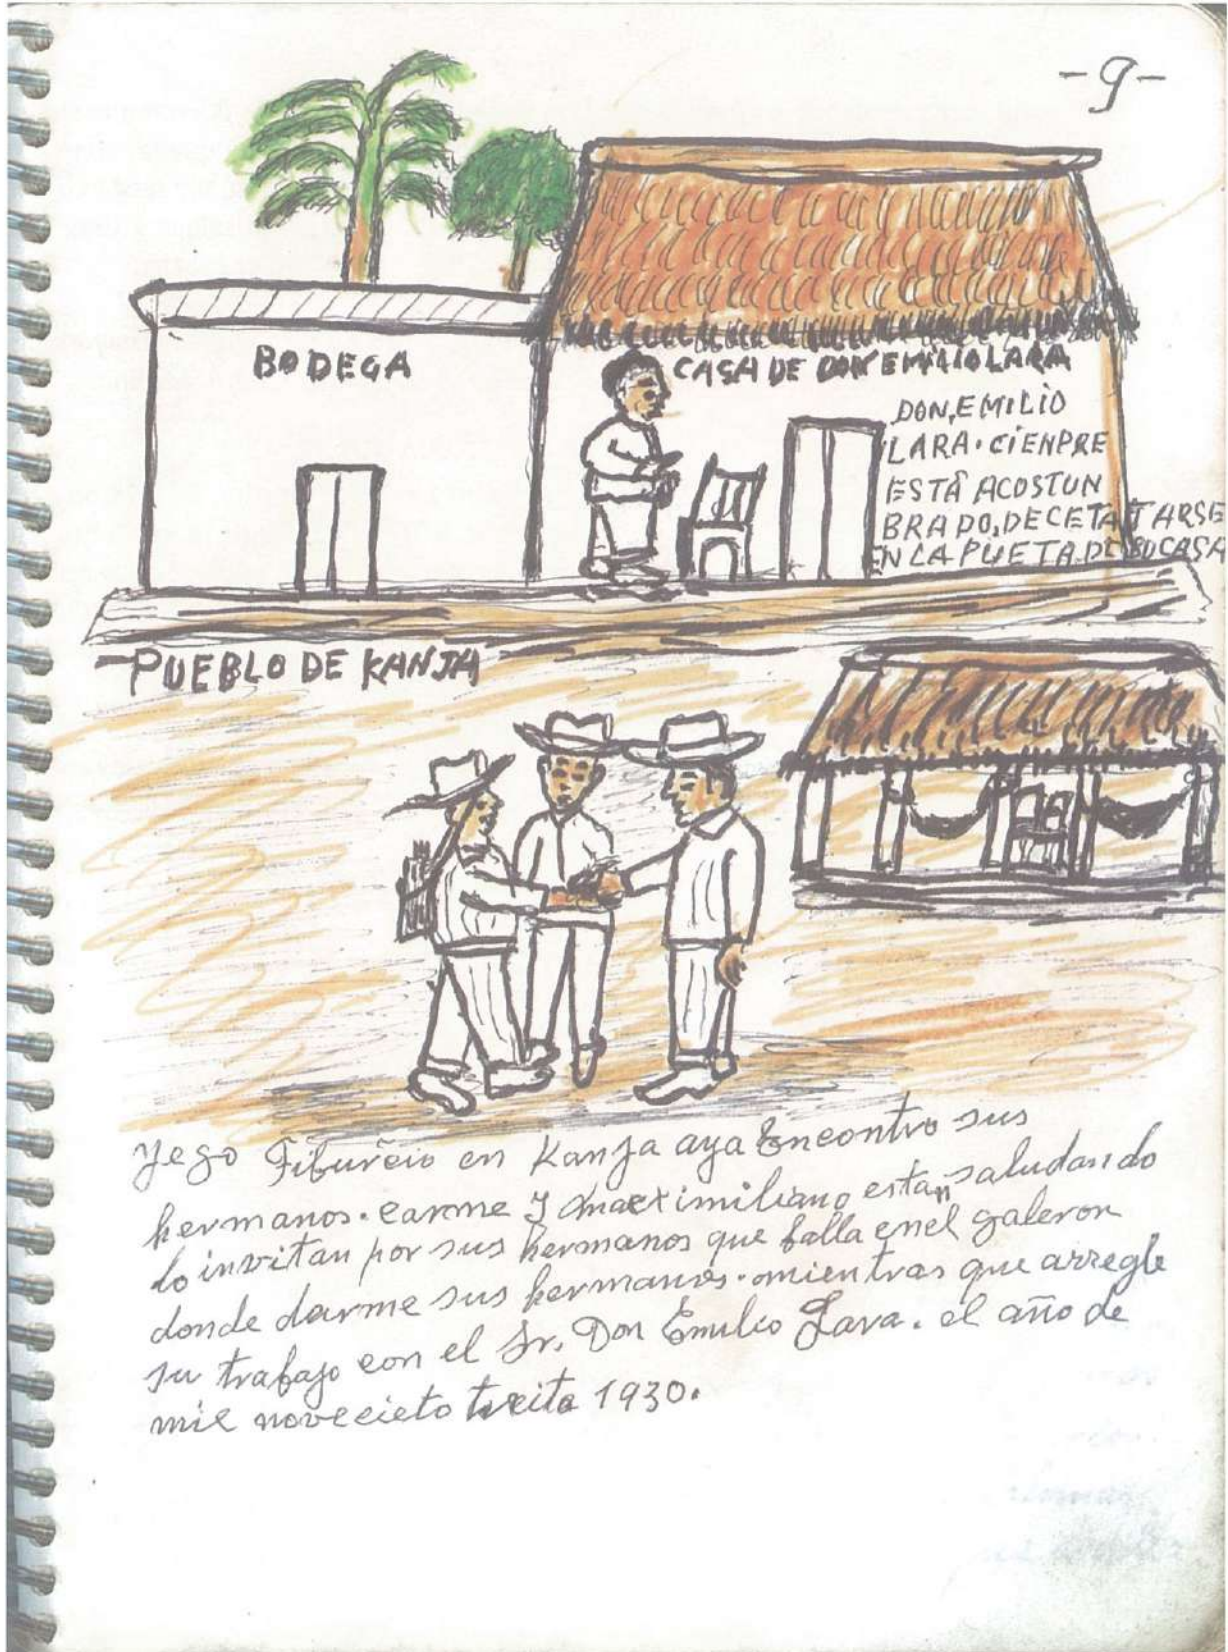 -9-
BODEGA
CASA DE DON EMILIO LARA
DON, EMILIO
LARA. CIENPRE
ESTÁ ACOSTUN
BRADO, DECETA TARSE
EN LA PUETA. DE SU CASA
-PUEBLO DE KANJA
Yego Tiburcio en Kanja aya Encontro sus
hermanos. carme y maximiliano estan saludando
lo invitan por sus hermanos que balla enel galeron
donde darme sus hermanos. mientras que arregle
su trabajo con el Sr. Don Emilio Lara. el año de
mil novecieto treita 1930.